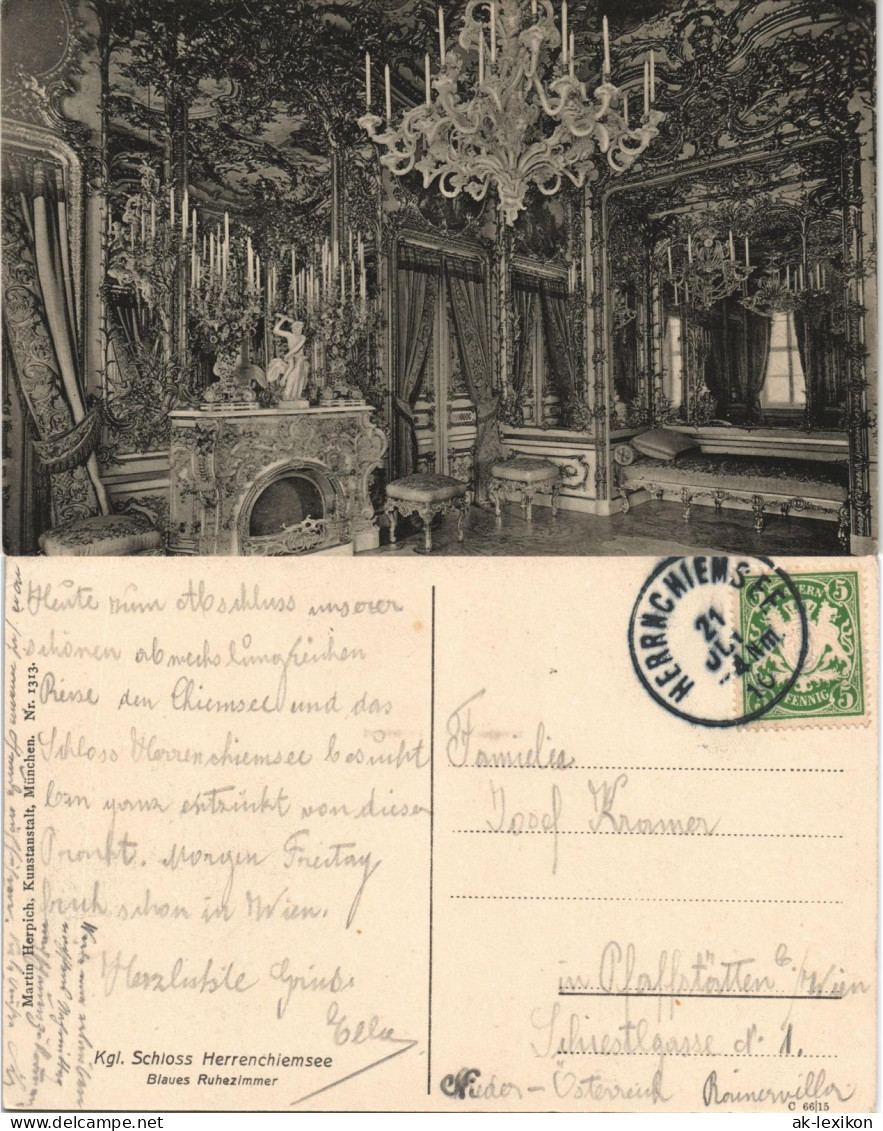 Heute zum Abschluss unserer
schönen abwechslungsreichen
Reise den Chiemsee und das
Schloss Herrenchiemsee besucht
bin ganz entzückt von dieser
Pracht. Morgen Freitag
früh schon in Wien.
Herzlichste Grüße
Ella
Kgl. Schloss Herrenchiemsee
Blaues Ruhezimmer
Martin Herpich, Kunstanstalt, München. Nr. 1313.
HERRNCHIEMSEE
21
JUL
Nm.
10
BAYERN
5
5
PFENNIG
Familie
Josef Kramer
in Pfaffstätten b/Wien
Schiestlgasse No 1.
Nieder-Österreich Rainervilla
C 66|15
ak-lexikon.com